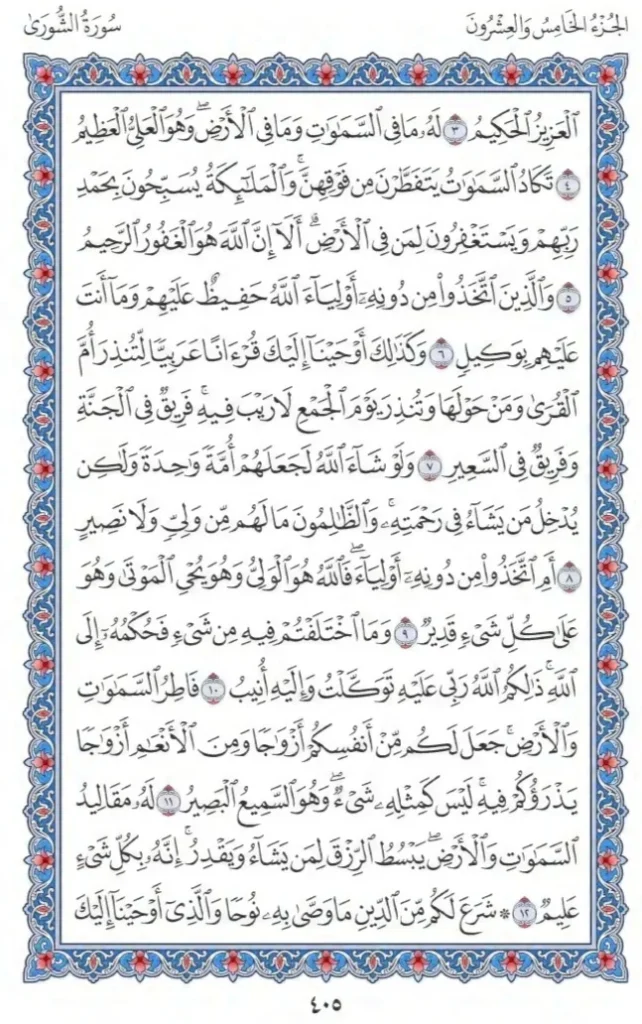 الجُزْءُ الخَامِسُ وَالعِشْرُونَ
سُورَةُ الشُّورَىٰ
ٱلْعَزِيزُ ٱلْحَكِيمُ ٣ لَهُۥ مَا فِي ٱلسَّمَٰوَٰتِ وَمَا فِي ٱلْأَرْضِۖ وَهُوَ ٱلْعَلِيُّ ٱلْعَظِيمُ
٤ تَكَادُ ٱلسَّمَٰوَٰتُ يَتَفَطَّرْنَ مِن فَوْقِهِنَّۚ وَٱلْمَلَٰٓئِكَةُ يُسَبِّحُونَ بِحَمْدِ
رَبِّهِمْ وَيَسْتَغْفِرُونَ لِمَن فِي ٱلْأَرْضِۗ أَلَآ إِنَّ ٱللَّهَ هُوَ ٱلْغَفُورُ ٱلرَّحِيمُ
٥ وَٱلَّذِينَ ٱتَّخَذُوا۟ مِن دُونِهِۦٓ أَوْلِيَآءَ ٱللَّهُ حَفِيظٌ عَلَيْهِمْ وَمَآ أَنتَ
عَلَيْهِم بِوَكِيلٍ ٦ وَكَذَٰلِكَ أَوْحَيْنَآ إِلَيْكَ قُرْءَانًا عَرَبِيًّا لِّتُنذِرَ أُمَّ
ٱلْقُرَىٰ وَمَنْ حَوْلَهَا وَتُنذِرَ يَوْمَ ٱلْجَمْعِ لَا رَيْبَ فِيهِۚ فَرِيقٌ فِي ٱلْجَنَّةِ
وَفَرِيقٌ فِي ٱلسَّعِيرِ ٧ وَلَوْ شَآءَ ٱللَّهُ لَجَعَلَهُمْ أُمَّةً وَٰحِدَةً وَلَٰكِن
يُدْخِلُ مَن يَشَآءُ فِي رَحْمَتِهِۦۚ وَٱلظَّٰلِمُونَ مَا لَهُم مِّن وَلِيٍّ وَلَا نَصِيرٍ
٨ أَمِ ٱتَّخَذُوا۟ مِن دُونِهِۦٓ أَوْلِيَآءَۖ فَٱللَّهُ هُوَ ٱلْوَلِيُّ وَهُوَ يُحْيِ ٱلْمَوْتَىٰ وَهُوَ
عَلَىٰ كُلِّ شَيْءٍ قَدِيرٌ ٩ وَمَا ٱخْتَلَفْتُمْ فِيهِ مِن شَيْءٍ فَحُكْمُهُۥٓ إِلَى
ٱللَّهِۚ ذَٰلِكُمُ ٱللَّهُ رَبِّي عَلَيْهِ تَوَكَّلْتُ وَإِلَيْهِ أُنِيبُ ١٠ فَاطِرُ ٱلسَّمَٰوَٰتِ
وَٱلْأَرْضِۚ جَعَلَ لَكُم مِّنْ أَنفُسِكُمْ أَزْوَٰجًا وَمِنَ ٱلْأَنْعَٰمِ أَزْوَٰجًا
يَذْرَؤُكُمْ فِيهِۚ لَيْسَ كَمِثْلِهِۦ شَيْءٌۖ وَهُوَ ٱلسَّمِيعُ ٱلْبَصِيرُ ١١ لَهُۥ مَقَالِيدُ
ٱلسَّمَٰوَٰتِ وَٱلْأَرْضِۖ يَبْسُطُ ٱلرِّزْقَ لِمَن يَشَآءُ وَيَقْدِرُۚ إِنَّهُۥ بِكُلِّ شَيْءٍ
عَلِيمٌ ١٢ ۞ شَرَعَ لَكُم مِّنَ ٱلدِّينِ مَا وَصَّىٰ بِهِۦ نُوحًا وَٱلَّذِيٓ أَوْحَيْنَآ إِلَيْكَ
٤٠٥